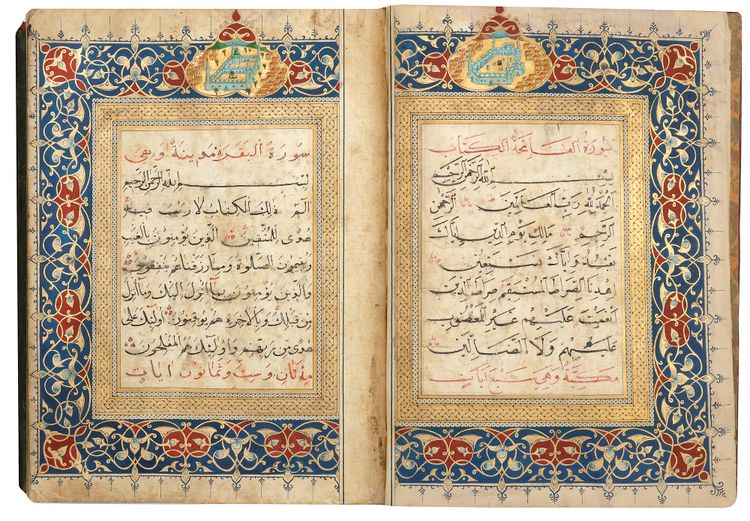 سورة الفاتحة الكتاب
بسم الله الرحمن الرحيم
الحمد لله رب العالمين الرحمن
الرحيم مالك يوم الدين اياك
نعبد واياك نستعين
اهدنا الصراط المستقيم صراط الذين
انعمت عليهم غير المغضوب
عليهم ولا الضالين
مكية وهي سبع ايات
سورة البقرة مدينة وهي
بسم الله الرحمن الرحيم
الم ذلك الكتاب لا ريب فيه
هدى للمتقين الذين يؤمنون بالغيب
ويقيمون الصلوة ومما رزقناهم ينفقون
والذين يؤمنون بما انزل اليك وما انزل
من قبلك وبالاخرة هم يوقنون اولئك على
هدى من ربهم واولئك هم المفلحون
مئتان وست وثمانون ايات